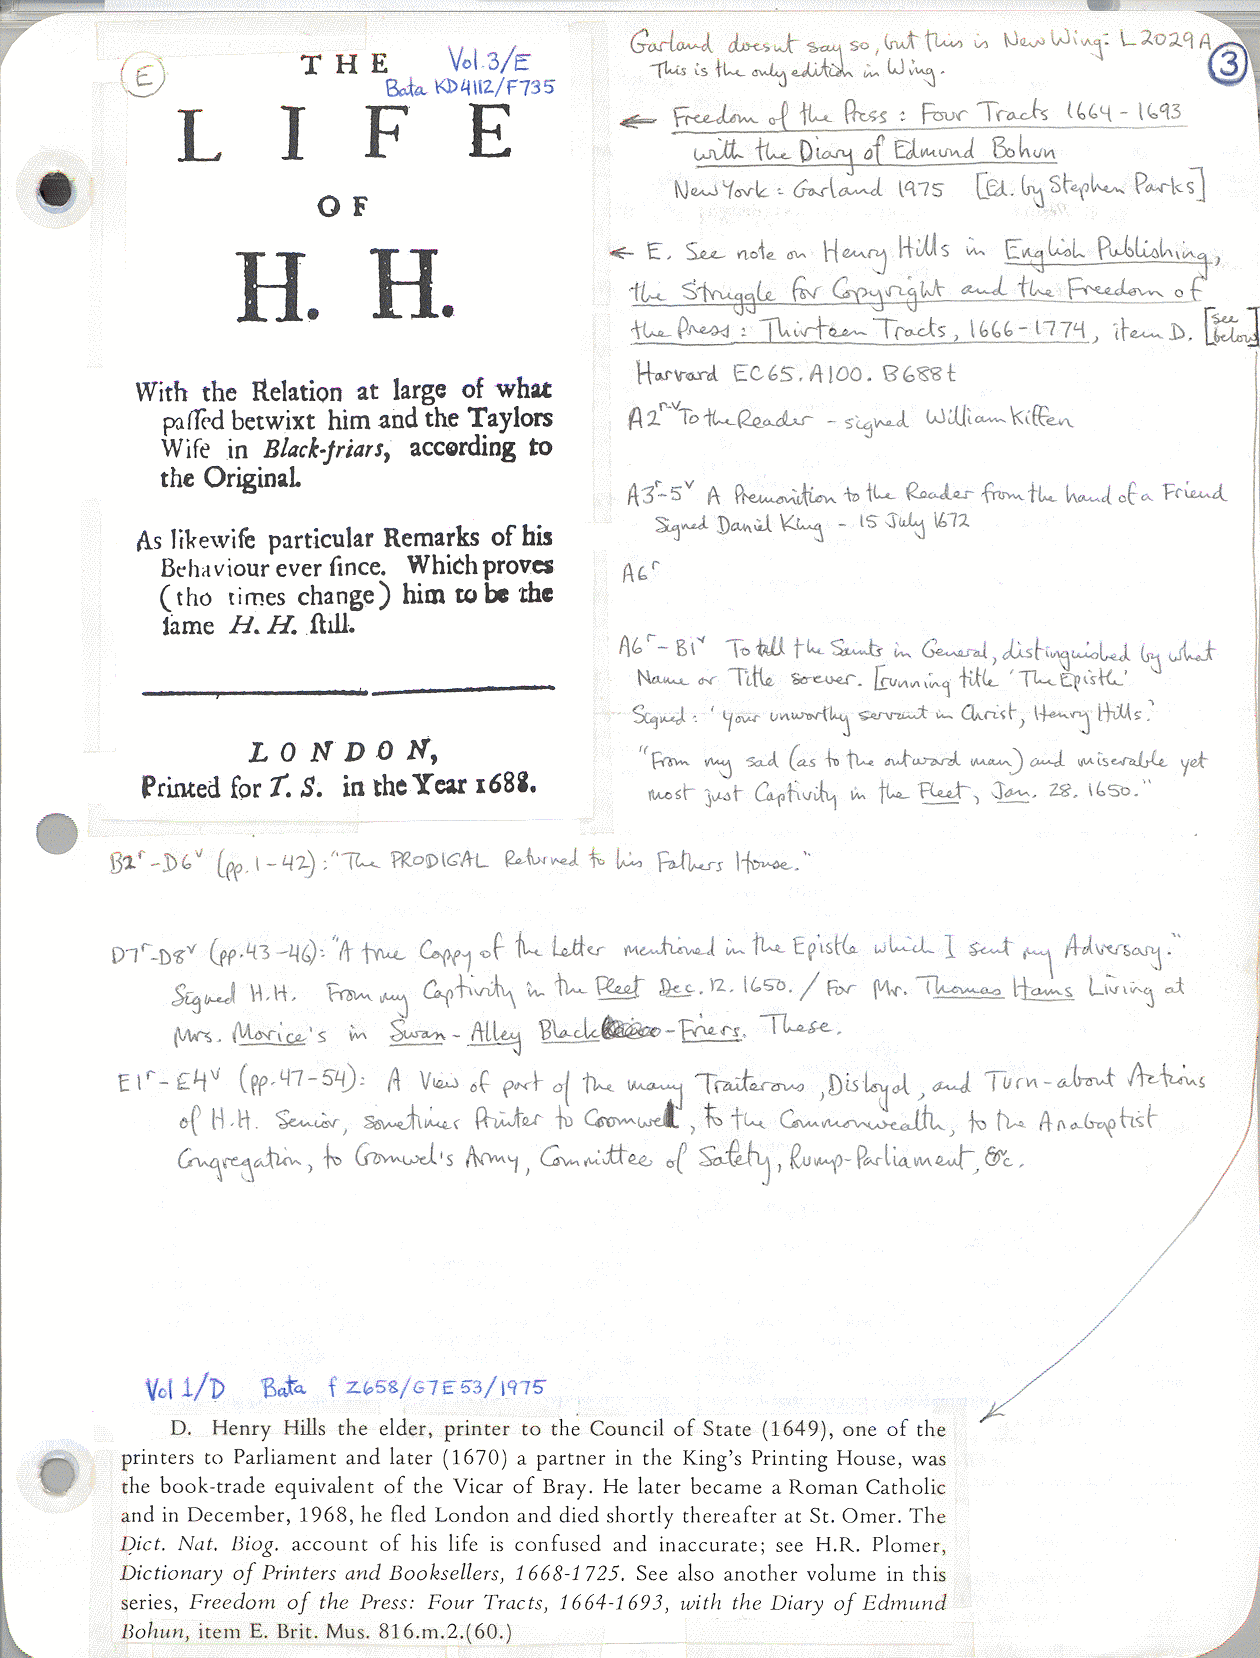 E
THE
Vol.3/E
Bata KD4112/F735
LIFE
OF
H. H.
With the Relation at large of what
paſſed betwixt him and the Taylors
Wife in Black-friars, according to
the Original.
As likewiſe particular Remarks of his
Behaviour ever ſince. Which proves
(tho times change) him to be the
ſame H. H. ſtill.
LONDON,
Printed for T. S. in the Year 1688.
Garland doesnt say so, but this is New Wing: L2029A
This is the only edition in Wing.
3
← Freedom of the Press: Four Tracts 1664-1693
with the Diary of Edmund Bohun
New York: Garland 1975 [Ed. by Stephen Parks]
← E. See note on Henry Hills in English Publishing,
the Struggle for Copyright and the Freedom of
the Press: Thirteen Tracts, 1666-1774, item D. [see below]
Harvard EC65.A100.B688t
A2r-v To the Reader - signed William Kiffen
A3r-5v A Premonition to the Reader from the hand of a Friend
Signed Daniel King - 15 July 1672
A6r
A6r-B1v To tell the Saints in General, distinguished by what
Name or Title soever. [running title 'The Epistle'
Signed: 'your unworthy servant in Christ, Henry Hills.'
"From my sad (as to the outward man) and miserable yet
most just Captivity in the Fleet, Jan. 28. 1650."
B2r-D6v (pp.1-42): "The PRODIGAL Returned to his Fathers House."
D7r-D8v (pp.43-46): "A true Coppy of the Letter mentioned in the Epistle which I sent my Adversary."
Signed H.H. From my Captivity in the Fleet Dec. 12. 1650. / For Mr. Thomas Hams Living at
Mrs. Morice's in Swan-Alley Black-Friers. These.
E1r-E4v (pp.47-54): A View of part of the many Traiterous, Disloyal, and Turn-about Actions
of H.H. Senior, sometimes Printer to Cromwel, to the Commonwealth, to the Anabaptist
Congregation, to Cromwel's Army, Committee of Safety, Rump-Parliament, &c.
Vol 1/D Bata f Z658/G7E53/1975
D. Henry Hills the elder, printer to the Council of State (1649), one of the
printers to Parliament and later (1670) a partner in the King's Printing House, was
the book-trade equivalent of the Vicar of Bray. He later became a Roman Catholic
and in December, 1968, he fled London and died shortly thereafter at St. Omer. The
Dict. Nat. Biog. account of his life is confused and inaccurate; see H.R. Plomer,
Dictionary of Printers and Booksellers, 1668-1725. See also another volume in this
series, Freedom of the Press: Four Tracts, 1664-1693, with the Diary of Edmund
Bohun, item E. Brit. Mus. 816.m.2.(60.)